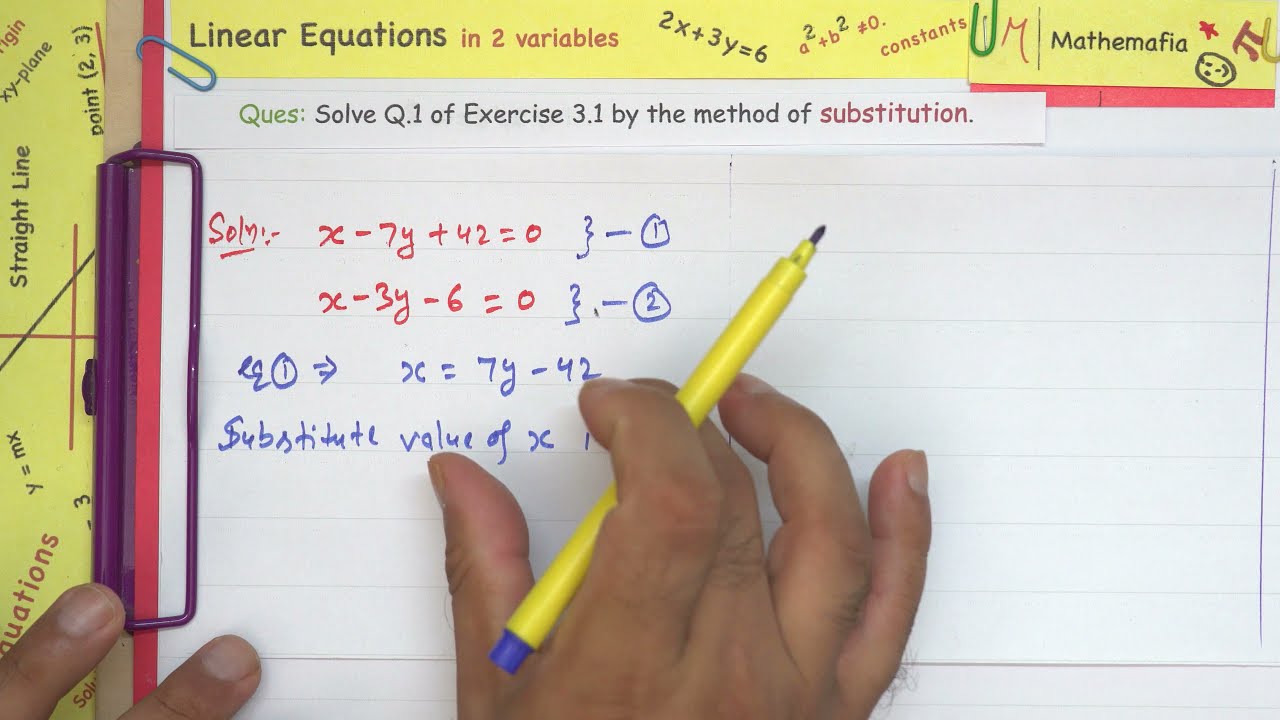 Linear Equations in 2 variables
2x+3y=6
a²+b² ≠0.
constants
M
Mathemafia
π
Ques: Solve Q.1 of Exercise 3.1 by the method of substitution.
Soln:- x - 7y + 42 = 0 } - ①
x - 3y - 6 = 0 } - ②
eq ① ⇒ x = 7y - 42
Substitute value of x
xy-plane
point (2, 3)
Straight Line
y = mx
3